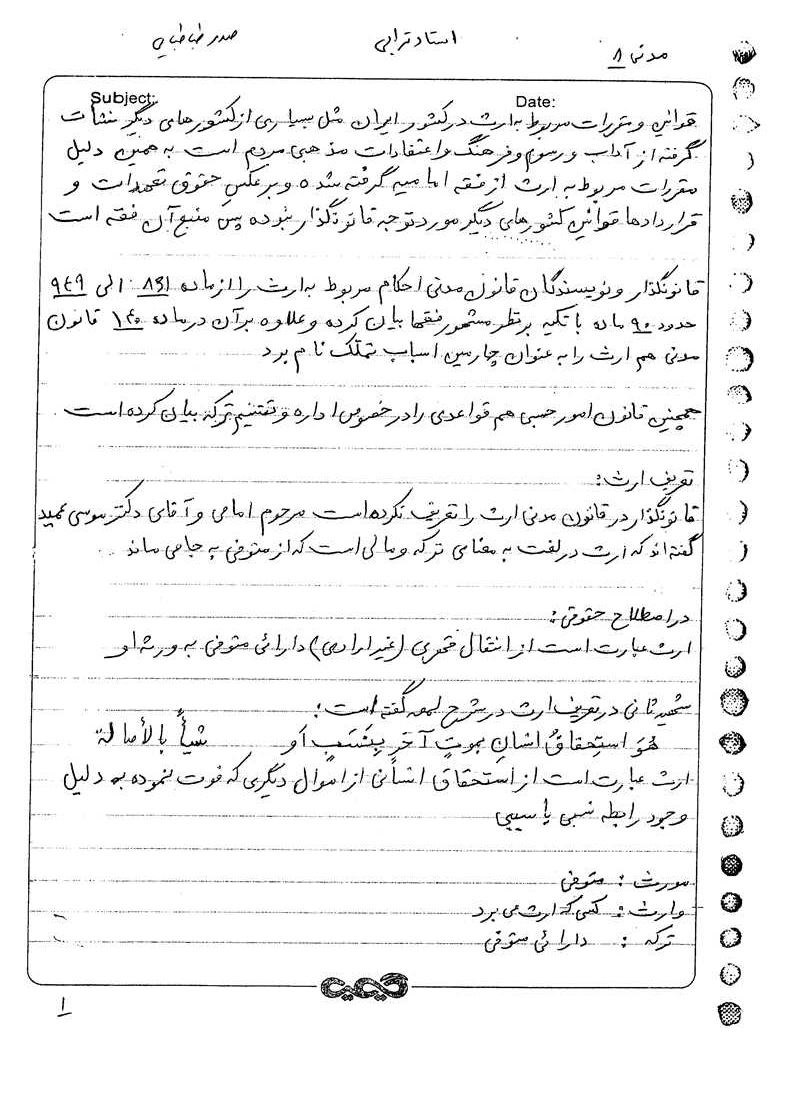 مدنی ۸
استاد ترابی
صدر طباطبایی
Subject:
Date:
قوانین و مقررات مربوط به ارث در کشور ایران مثل بسیاری از کشورهای دیگر نشأت
گرفته از آداب و رسوم و فرهنگ و اعتقادات مذهبی مردم است به همین دلیل
مقررات مربوط به ارث از فقه امامیه گرفته شده و بر عکس حقوق تعهدات و
قراردادها قوانین کشورهای دیگر مورد توجه قانونگذار نبوده پس منبع آن فقه است
قانونگذار و نویسندگان قانون مدنی احکام مربوط به ارث را از ماده ۸۶۱ الی ۹۴۹
حدود ۹۰ ماده با تکیه بر نظر مشهور فقها بیان کرده و علاوه بر آن در ماده ۱۴۰ قانون
مدنی هم ارث را به عنوان چارمین اسباب تملک نام برد
همچنین قانون امور حسبی هم قواعدی را در خصوص اداره و تقسیم ترکه بیان کرده است
تعریف ارث:
قانونگذار در قانون مدنی ارث را تعریف نکرده است مرحوم امامی و آقای دکتر موسی عمید
گفته اند که ارث در لغت به معنای ترکه و مالی است که از متوفی به جا می ماند
در اصطلاح حقوقی:
ارث عبارت است از انتقال قهری (غیر ارادی) دارائی متوفی به ورثه او
شهید ثانی در تعریف ارث در شرح لمعه گفته است:
هُوَ استِحقاقُ انسانِ بموتِ آخَرِ بِنَسَبٍ أو شیأً بالأصالة
ارث عبارت است از استحقاق انسانی از اموال دیگری که فوت نموده به دلیل
وجود رابطه نسبی یا سببی
مورث : متوفی
وارث : کسی که ارث می برد
ترکه : دارائی متوفی
۱